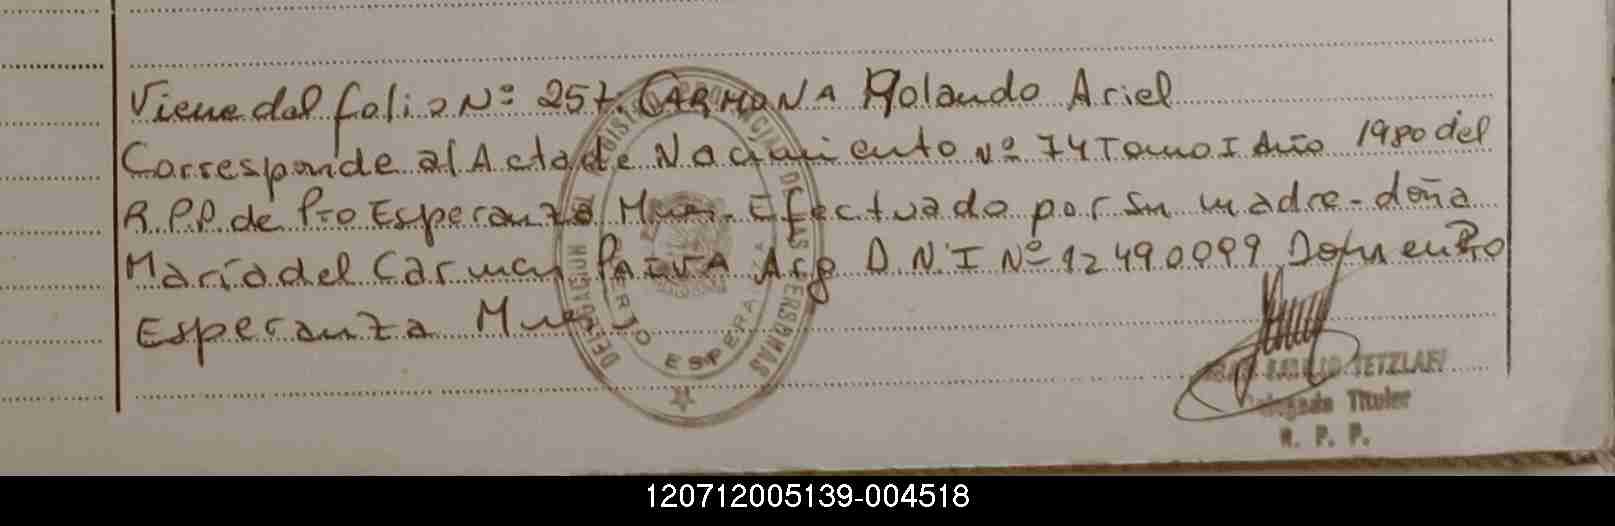 Viene del folio Nº 257. CARMONA Rolando Ariel
Corresponde al Acta de Nacimiento Nº 74 Tomo I Año 1980 del
R.P.P. de Pto Esperanza Mnes. Efectuado por su madre - doña
María del Carmen PAIVA Arg D.N.I Nº 12490099 Dom en Pto
Esperanza Mnes
PUERTO ESPERANZA
TETZLAFF
Delegado Titular
R. P. P.
120712005139-004518